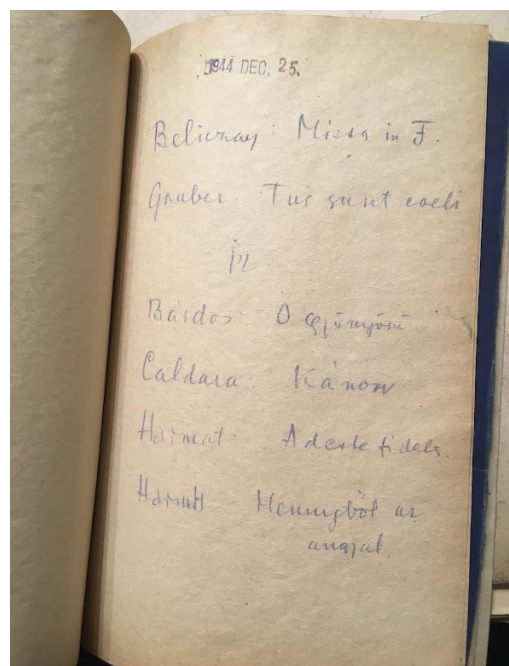 1944 DEC. 25.
Beliczay: Missa in F.
Gruber Tui sunt coeli
Bárdos: O gyönyörű
Caldara: Kánon
Harmat: Adeste fideles.
Harmat Mennyből az
angyal.